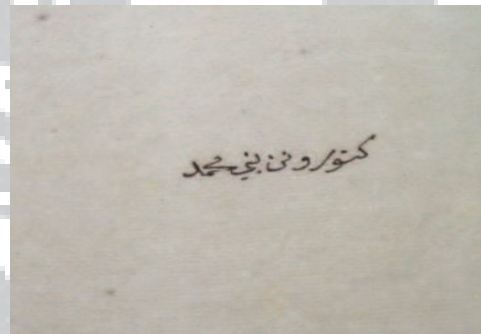 كتورونن نبي محمد